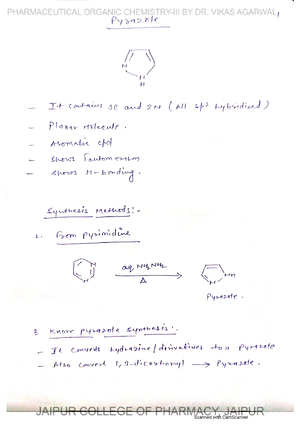 PHARMACEUTICAL ORGANIC CHEMISTRY-III BY DR. VIKAS AGARWAL
1
Pyrazole
N
N
H
- It contains 3C and 2N (All sp² hybridised)
- Planar Molecule.
- Aromatic cpd
- Shows Tautomerism
- Shows H-bonding.
Synthesis Methods:-
1. From pyrimidine
N
N
aq. NH₂NH₂
Δ
N
NH
Pyrazole.
2. Knorr pyrazole synthesis:-
- It converts hydrazine/derivatives to a Pyrazole
- Also convert 1,3-dicarbonyl → Pyrazole.
JAIPUR COLLEGE OF PHARMACY, JAIPUR
Scanned with CamScanner